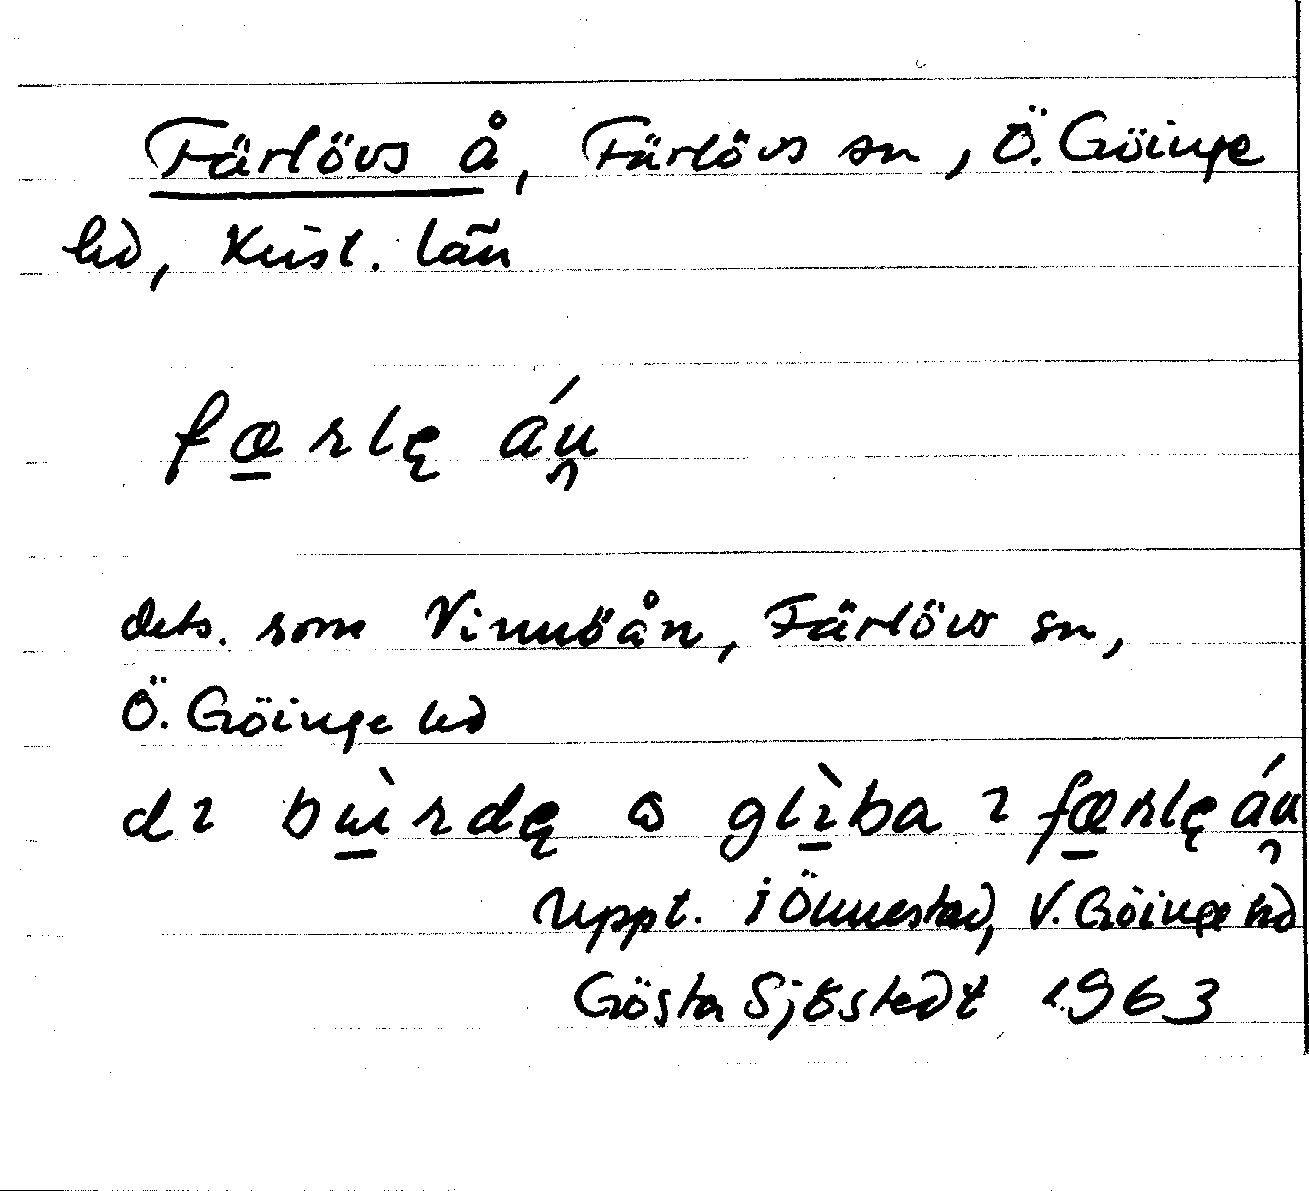 Färlövs å, Färlövs sn, Ö. Göinge
hd, Krist. län
færlę áu̯
dets. som Vinnöån, Färlövs sn,
Ö. Göinge hd
glìba færlę áu̯
Uppt. i Önnestad, V. Göinge hd
Gösta Sjöstedt 1963